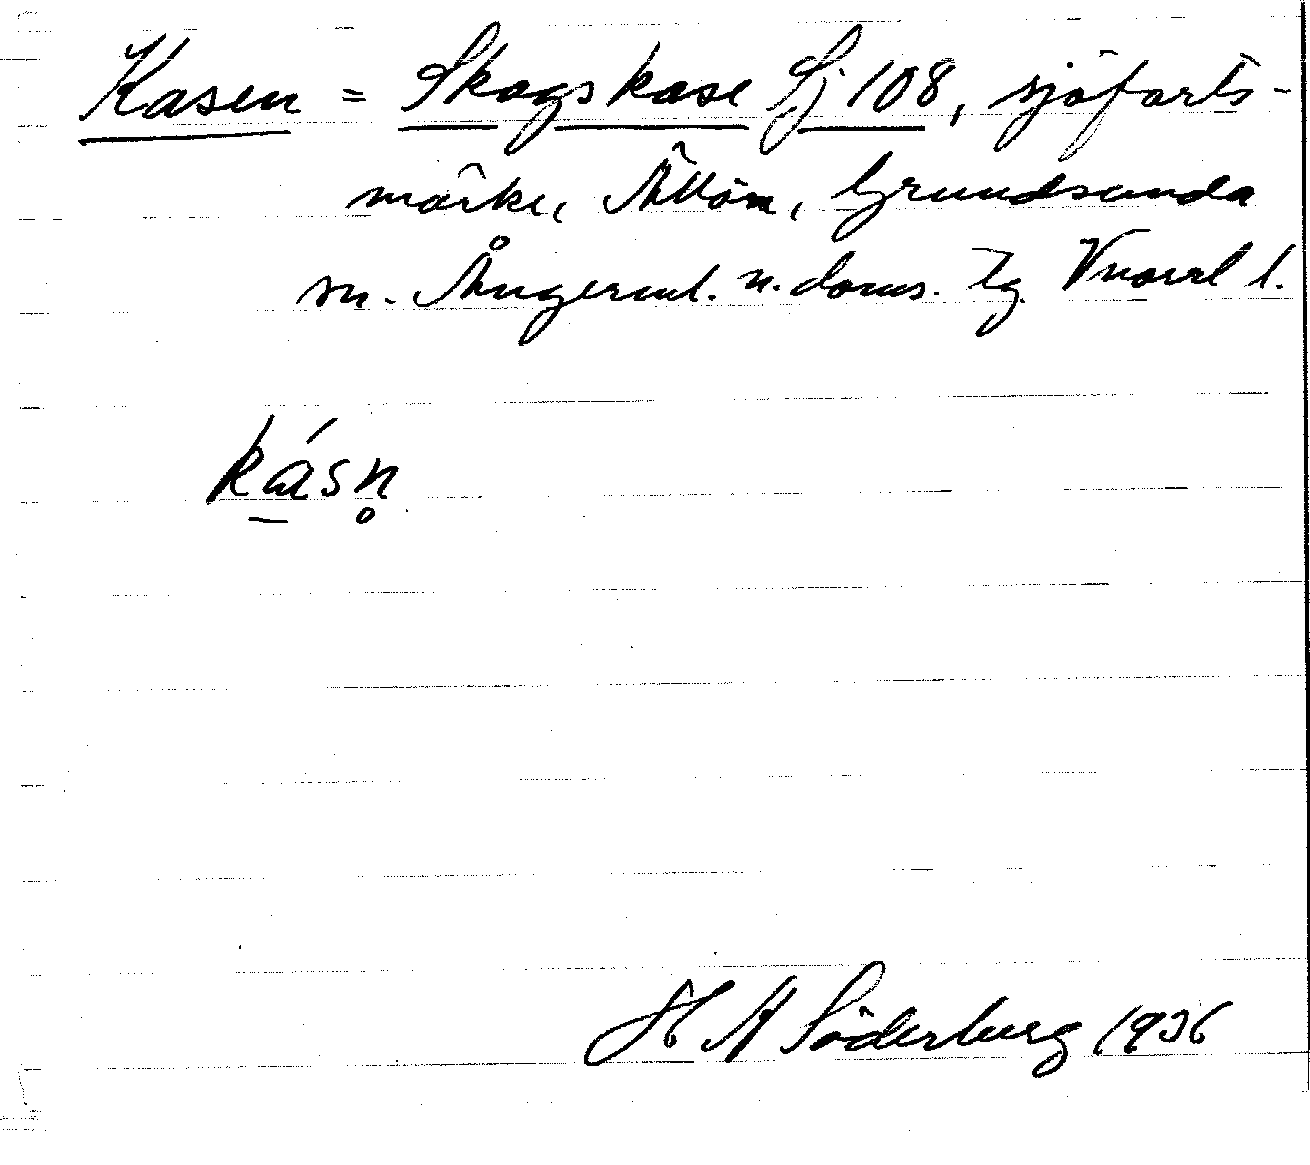 Kasen = Skags kase Sj 108, sjöfarts-
märke, Ållön, Grundsunda
sn. Ångerml. n. doms. tg. Vnorrl l.
kásn̥
H A Söderberg 1936